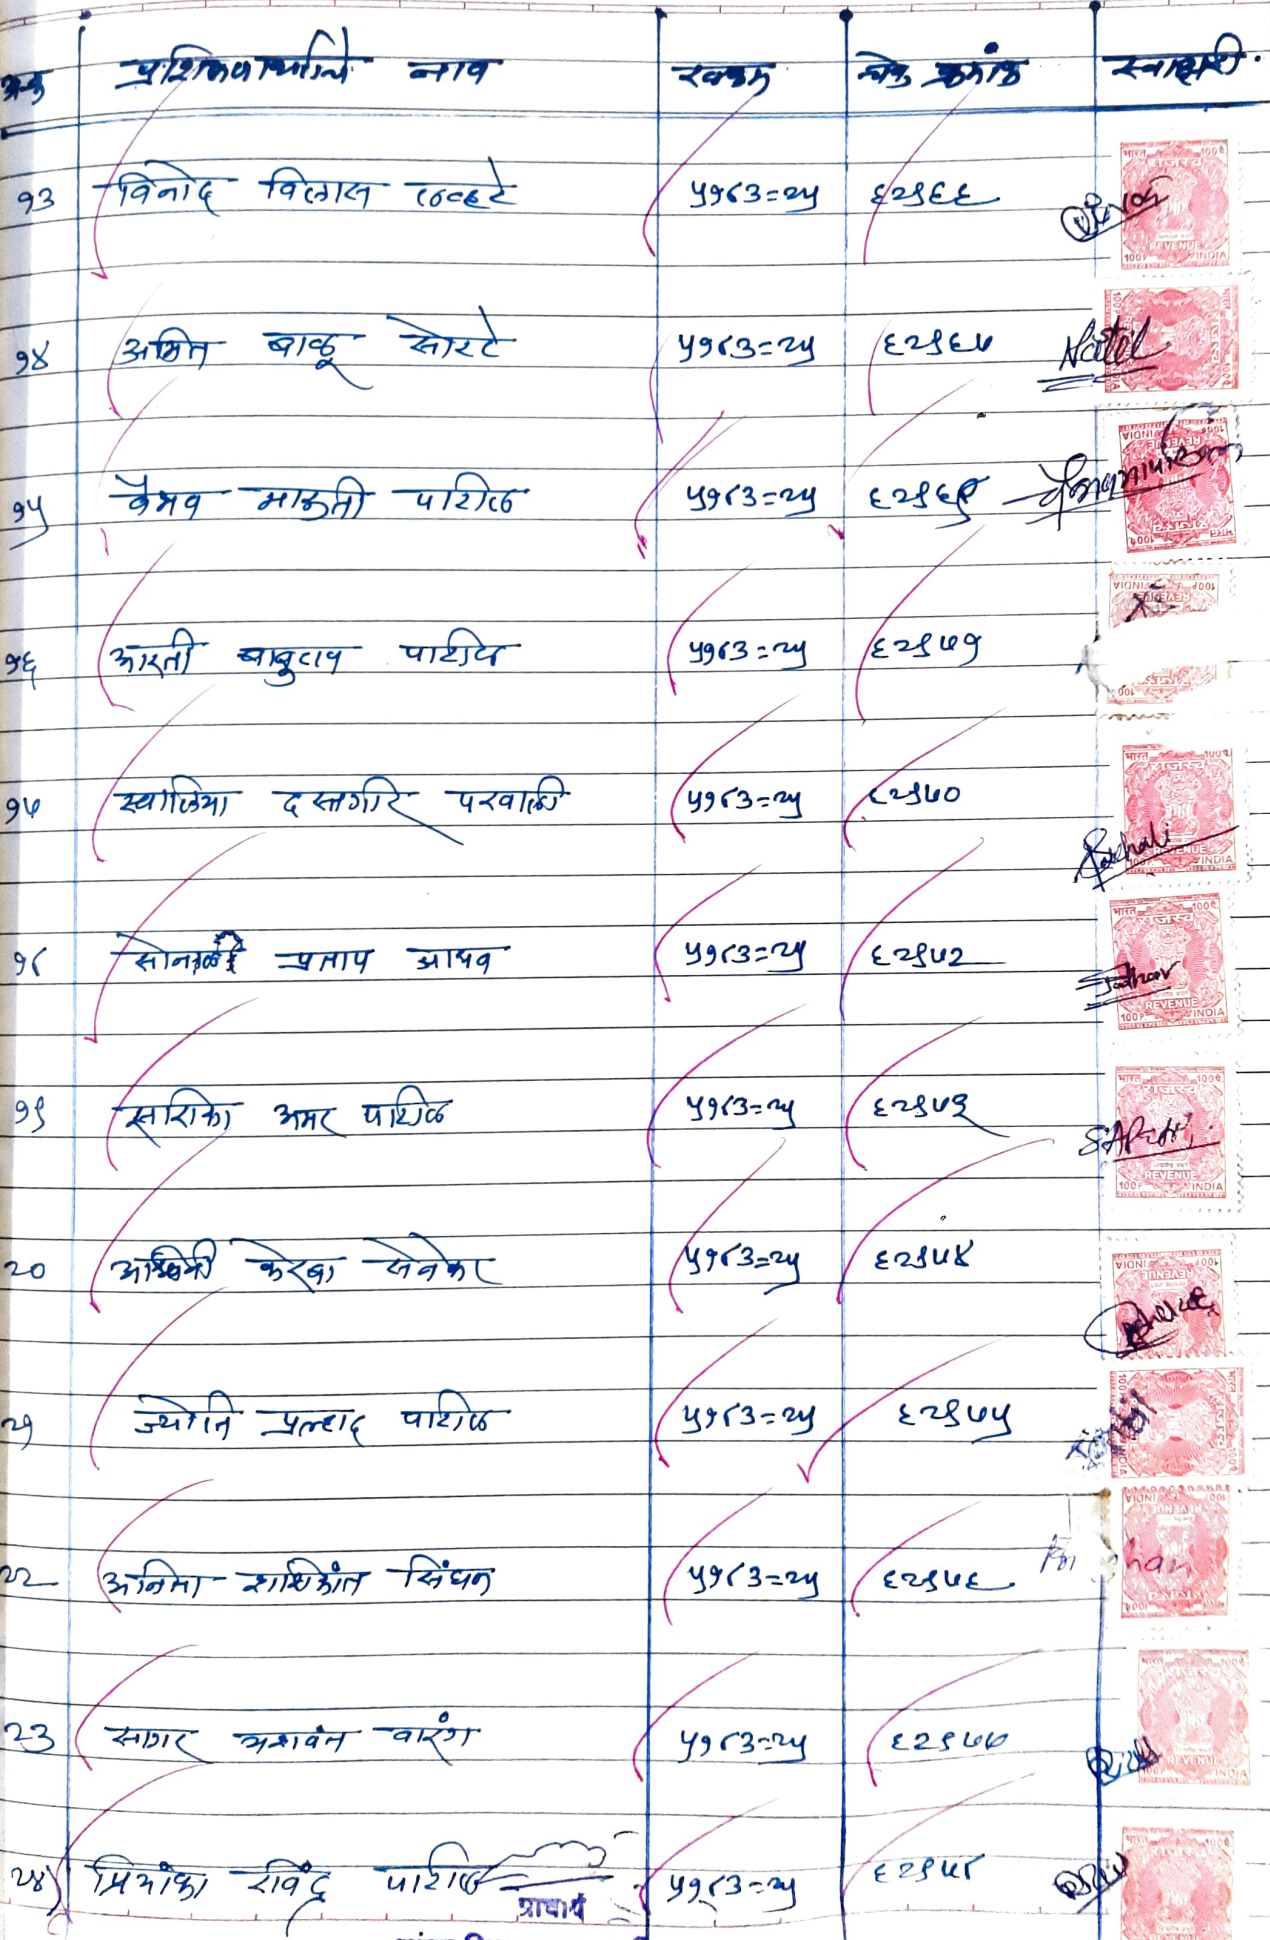 अक्र प्रशिक्षणार्थीचे नाव रक्कम चेक क्रमांक स्वाक्षरी.
१३ विनोद विलास लव्हटे ५१८३=२५ ६२९६६
१४ अमित बाळू सोरटे ५१८३=२५ ६२९६७
१५ वैभव मारूती पाटील ५१८३=२५ ६२९६९
१६ आरती बाबुराव पाटील ५१८३=२५ ६२९७१
१७ स्वालिया दस्तगीर परवाली ५१८३=२५ ६२९७०
१८ सोनाली प्रताप जाधव ५१८३=२५ ६२९७२
Jadhav
१९ सारिका अमर पाटील ५१८३=२५ ६२९७३
२० अश्विनी केरबा सेनेकर ५१८३=२५ ६२९७४
२१ ज्योति प्रल्हाद पाटील ५१८३=२५ ६२९७५
२२ अनिता शशिकांत सिंघन ५१८३=२५ ६२९७६
२३ सागर यशवंत वारंग ५१८३=२५ ६२९७७
२४) प्रियांका रविंद्र पाटील ५१८३=२५ ६२९७८
प्राचार्य
भारत 100P
राजस्व
REVENUE
INDIA